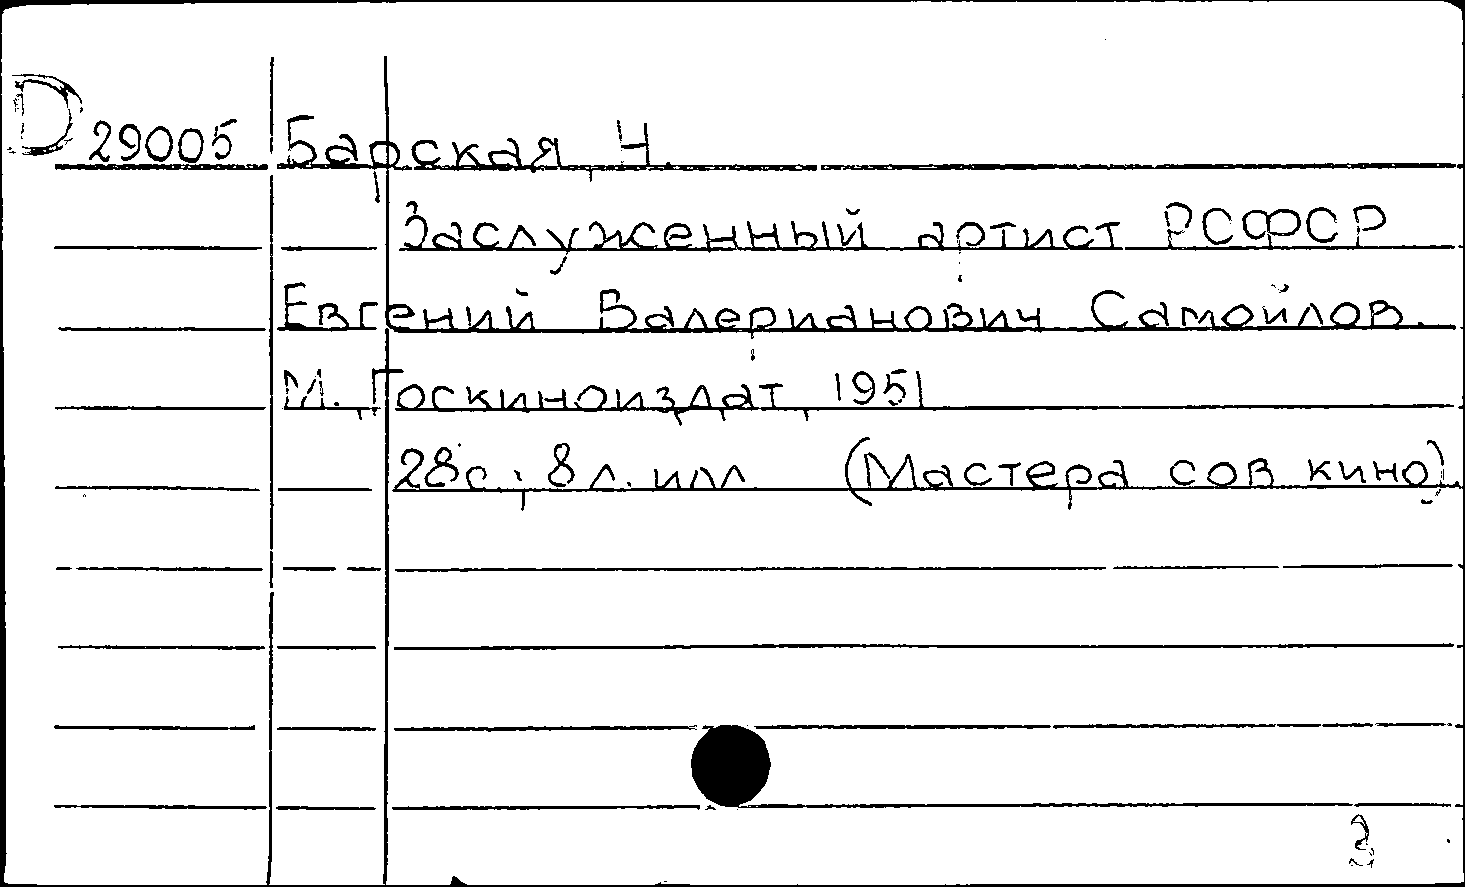 D 29005 Барская, Н.
Заслуженный артист РСФСР
Евгений Валерианович Самойлов.
М., Госкиноиздат, 1951
28с.; 8 л. илл (Мастера сов кино).
3